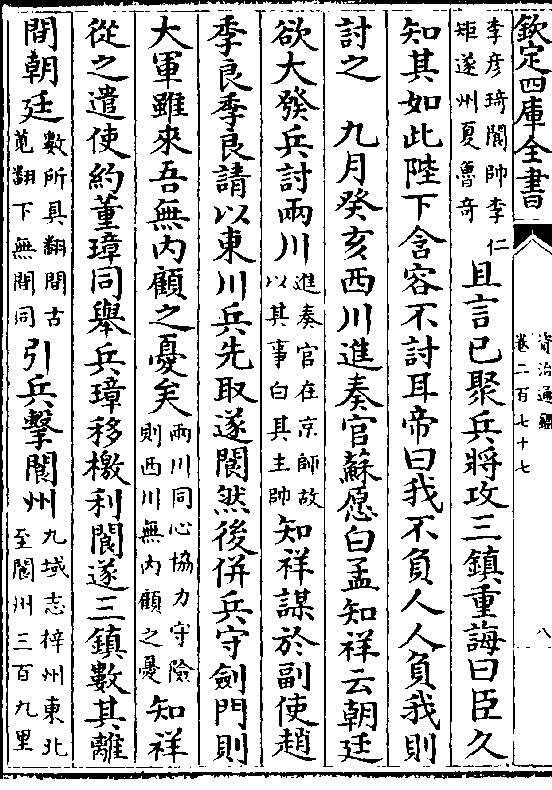 欽定四庫全書
資治通鑑
卷二百七十七
八
李彦琦閬帥李仁
矩遂州夏魯奇
且言已聚兵將攻三鎮重誨曰臣久
知其如此陛下含容不討耳帝曰我不負人人負我則
討之　九月癸亥西川進奏官蘇愿白孟知祥云朝廷
欲大發兵討兩川
進奏官在京師故
以其事白其主帥
知祥謀於副使趙
季良季良請以東川兵先取遂閬然後併兵守劍門則
大軍雖來吾無内顧之憂矣
兩川同心協力守險
則西川無内顧之憂
知祥
從之遣使約董璋同舉兵璋移檄利閬遂三鎮數其離
間朝廷
數所具翻間古
莧翻下無間同
引兵擊閬州
九域志梓州東北
至閬州三百九里